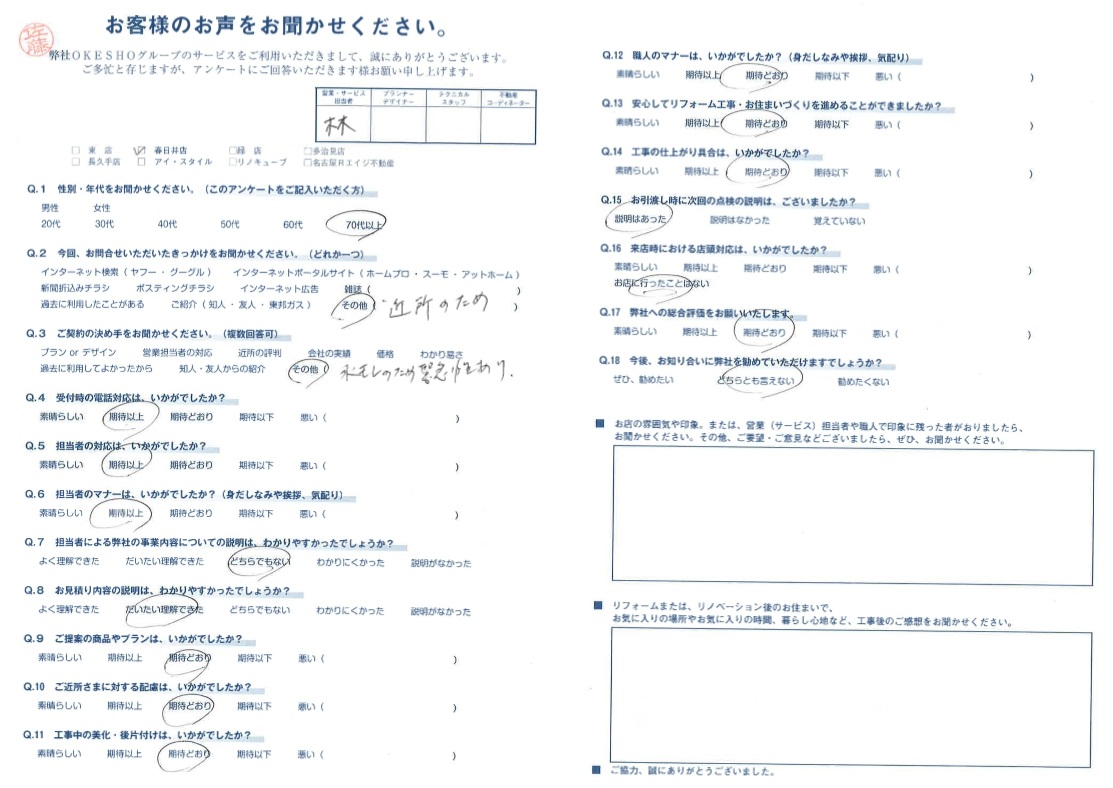 お客様のお声をお聞かせください。
佐藤
弊社OKESHOグループのサービスをご利用いただきまして、誠にありがとうございます。
ご多忙と存じますが、アンケートにご回答いただきます様お願い申し上げます。
営業・サービス担当者 プランナーデザイナー テクニカルスタッフ 不動産コーディネーター
林
□ 東 店 ☑ 春日井店 □緑 店 □多治見店
□ 長久手店 □ アイ・スタイル □リノキューブ □名古屋Rエイジ不動産
Q.1 性別・年代をお聞かせください。(このアンケートをご記入いただく方)
男性 女性
20代 30代 40代 50代 60代 70代以上
Q.2 今回、お問合せいただいたきっかけをお聞かせください。(どれか一つ)
インターネット検索(ヤフー・グーグル) インターネットポータルサイト(ホームプロ・スーモ・アットホーム)
新聞折込みチラシ ポスティングチラシ インターネット広告 雑誌( )
過去に利用したことがある ご紹介(知人・友人・東邦ガス) その他( 近所のため )
Q.3 ご契約の決め手をお聞かせください。(複数回答可)
プラン or デザイン 営業担当者の対応 近所の評判 会社の実績 価格 わかり易さ
過去に利用してよかったから 知人・友人からの紹介 その他( 水モレのため緊急性あり.
Q.4 受付時の電話対応は、いかがでしたか?
素晴らしい 期待以上 期待どおり 期待以下 悪い( )
Q.5 担当者の対応は、いかがでしたか?
素晴らしい 期待以上 期待どおり 期待以下 悪い( )
Q.6 担当者のマナーは、いかがでしたか?(身だしなみや挨拶、気配り)
素晴らしい 期待以上 期待どおり 期待以下 悪い( )
Q.7 担当者による弊社の事業内容についての説明は、わかりやすかったでしょうか?
よく理解できた だいたい理解できた どちらでもない わかりにくかった 説明がなかった
Q.8 お見積り内容の説明は、わかりやすかったでしょうか?
よく理解できた だいたい理解できた どちらでもない わかりにくかった 説明がなかった
Q.9 ご提案の商品やプランは、いかがでしたか?
素晴らしい 期待以上 期待どおり 期待以下 悪い( )
Q.10 ご近所さまに対する配慮は、いかがでしたか?
素晴らしい 期待以上 期待どおり 期待以下 悪い( )
Q.11 工事中の美化・後片付けは、いかがでしたか?
素晴らしい 期待以上 期待どおり 期待以下 悪い( )
Q.12 職人のマナーは、いかがでしたか?(身だしなみや挨拶、気配り)
素晴らしい 期待以上 期待どおり 期待以下 悪い( )
Q.13 安心してリフォーム工事・お住まいづくりを進めることができましたか?
素晴らしい 期待以上 期待どおり 期待以下 悪い( )
Q.14 工事の仕上がり具合は、いかがでしたか?
素晴らしい 期待以上 期待どおり 期待以下 悪い( )
Q.15 お引渡し時に次回の点検の説明は、ございましたか?
説明はあった 説明はなかった 覚えていない
Q.16 来店時における店頭対応は、いかがでしたか?
素晴らしい 期待以上 期待どおり 期待以下 悪い( )
お店に行ったことはない
Q.17 弊社への総合評価をお願いいたします。
素晴らしい 期待以上 期待どおり 期待以下 悪い( )
Q.18 今後、お知り合いに弊社を勧めていただけますでしょうか?
ぜひ、勧めたい どちらとも言えない 勧めたくない
■ お店の雰囲気や印象。または、営業(サービス)担当者や職人で印象に残った者がおりましたら、
お聞かせください。その他、ご要望・ご意見などございましたら、ぜひ、お聞かせください。
■ リフォームまたは、リノベーション後のお住まいで、
お気に入りの場所やお気に入りの時間、暮らし心地など、工事後のご感想をお聞かせください。
■ ご協力、誠にありがとうございました。